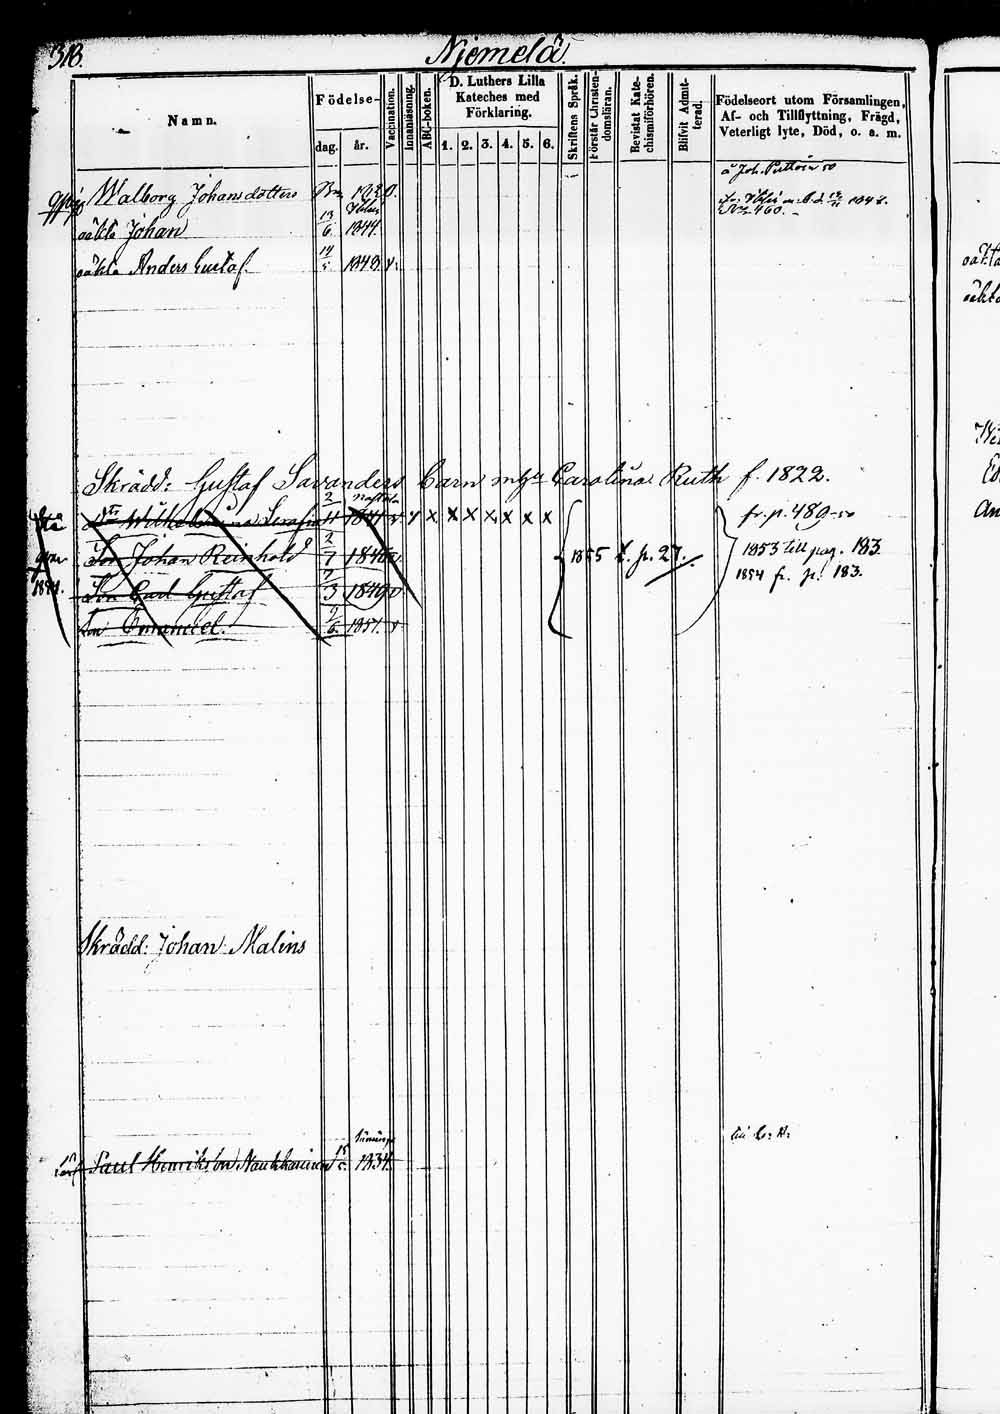 318.
Njemelä
Namn.
Födelse-
dag.
år.
Vaccination.
Innanläsning.
ABC-boken.
D. Luthers Lilla
Kateches med
Förklaring.
1. 2. 3. 4. 5. 6.
Skriftens Språk.
Förstår Christen-
domsläran.
Bevistat Kate-
chismiförhören.
Blifvit Admit-
terad.
Födelseort utom Församlingen,
Af- och Tillflyttning, Frägd,
Veterligt lyte, Död, o. a. m.
Walborg Johansdotter
oäkta Johan 13/6 1844.
oäkta Anders Gustaf. 14/5 1848. v.
No 460.
Skrädd: Gustaf Savanders Barn m hu Carolina Ruth f. 1822.
Wilhelmina Serafia 2/4 1844 v x x x x x x x x fr. p. 489-50
Son Johan Reinhold 2/7 1846 v 1855 t. p. 27. 1853 till pag. 183.
1854. Son Carl Gustaf 7/3 1849 v 1854 fr. p. 183.
Son Emanuel. 9/6 1851. v
Skrädd: Johan Malins
Paul Henriksson Naukkarinen 1834.